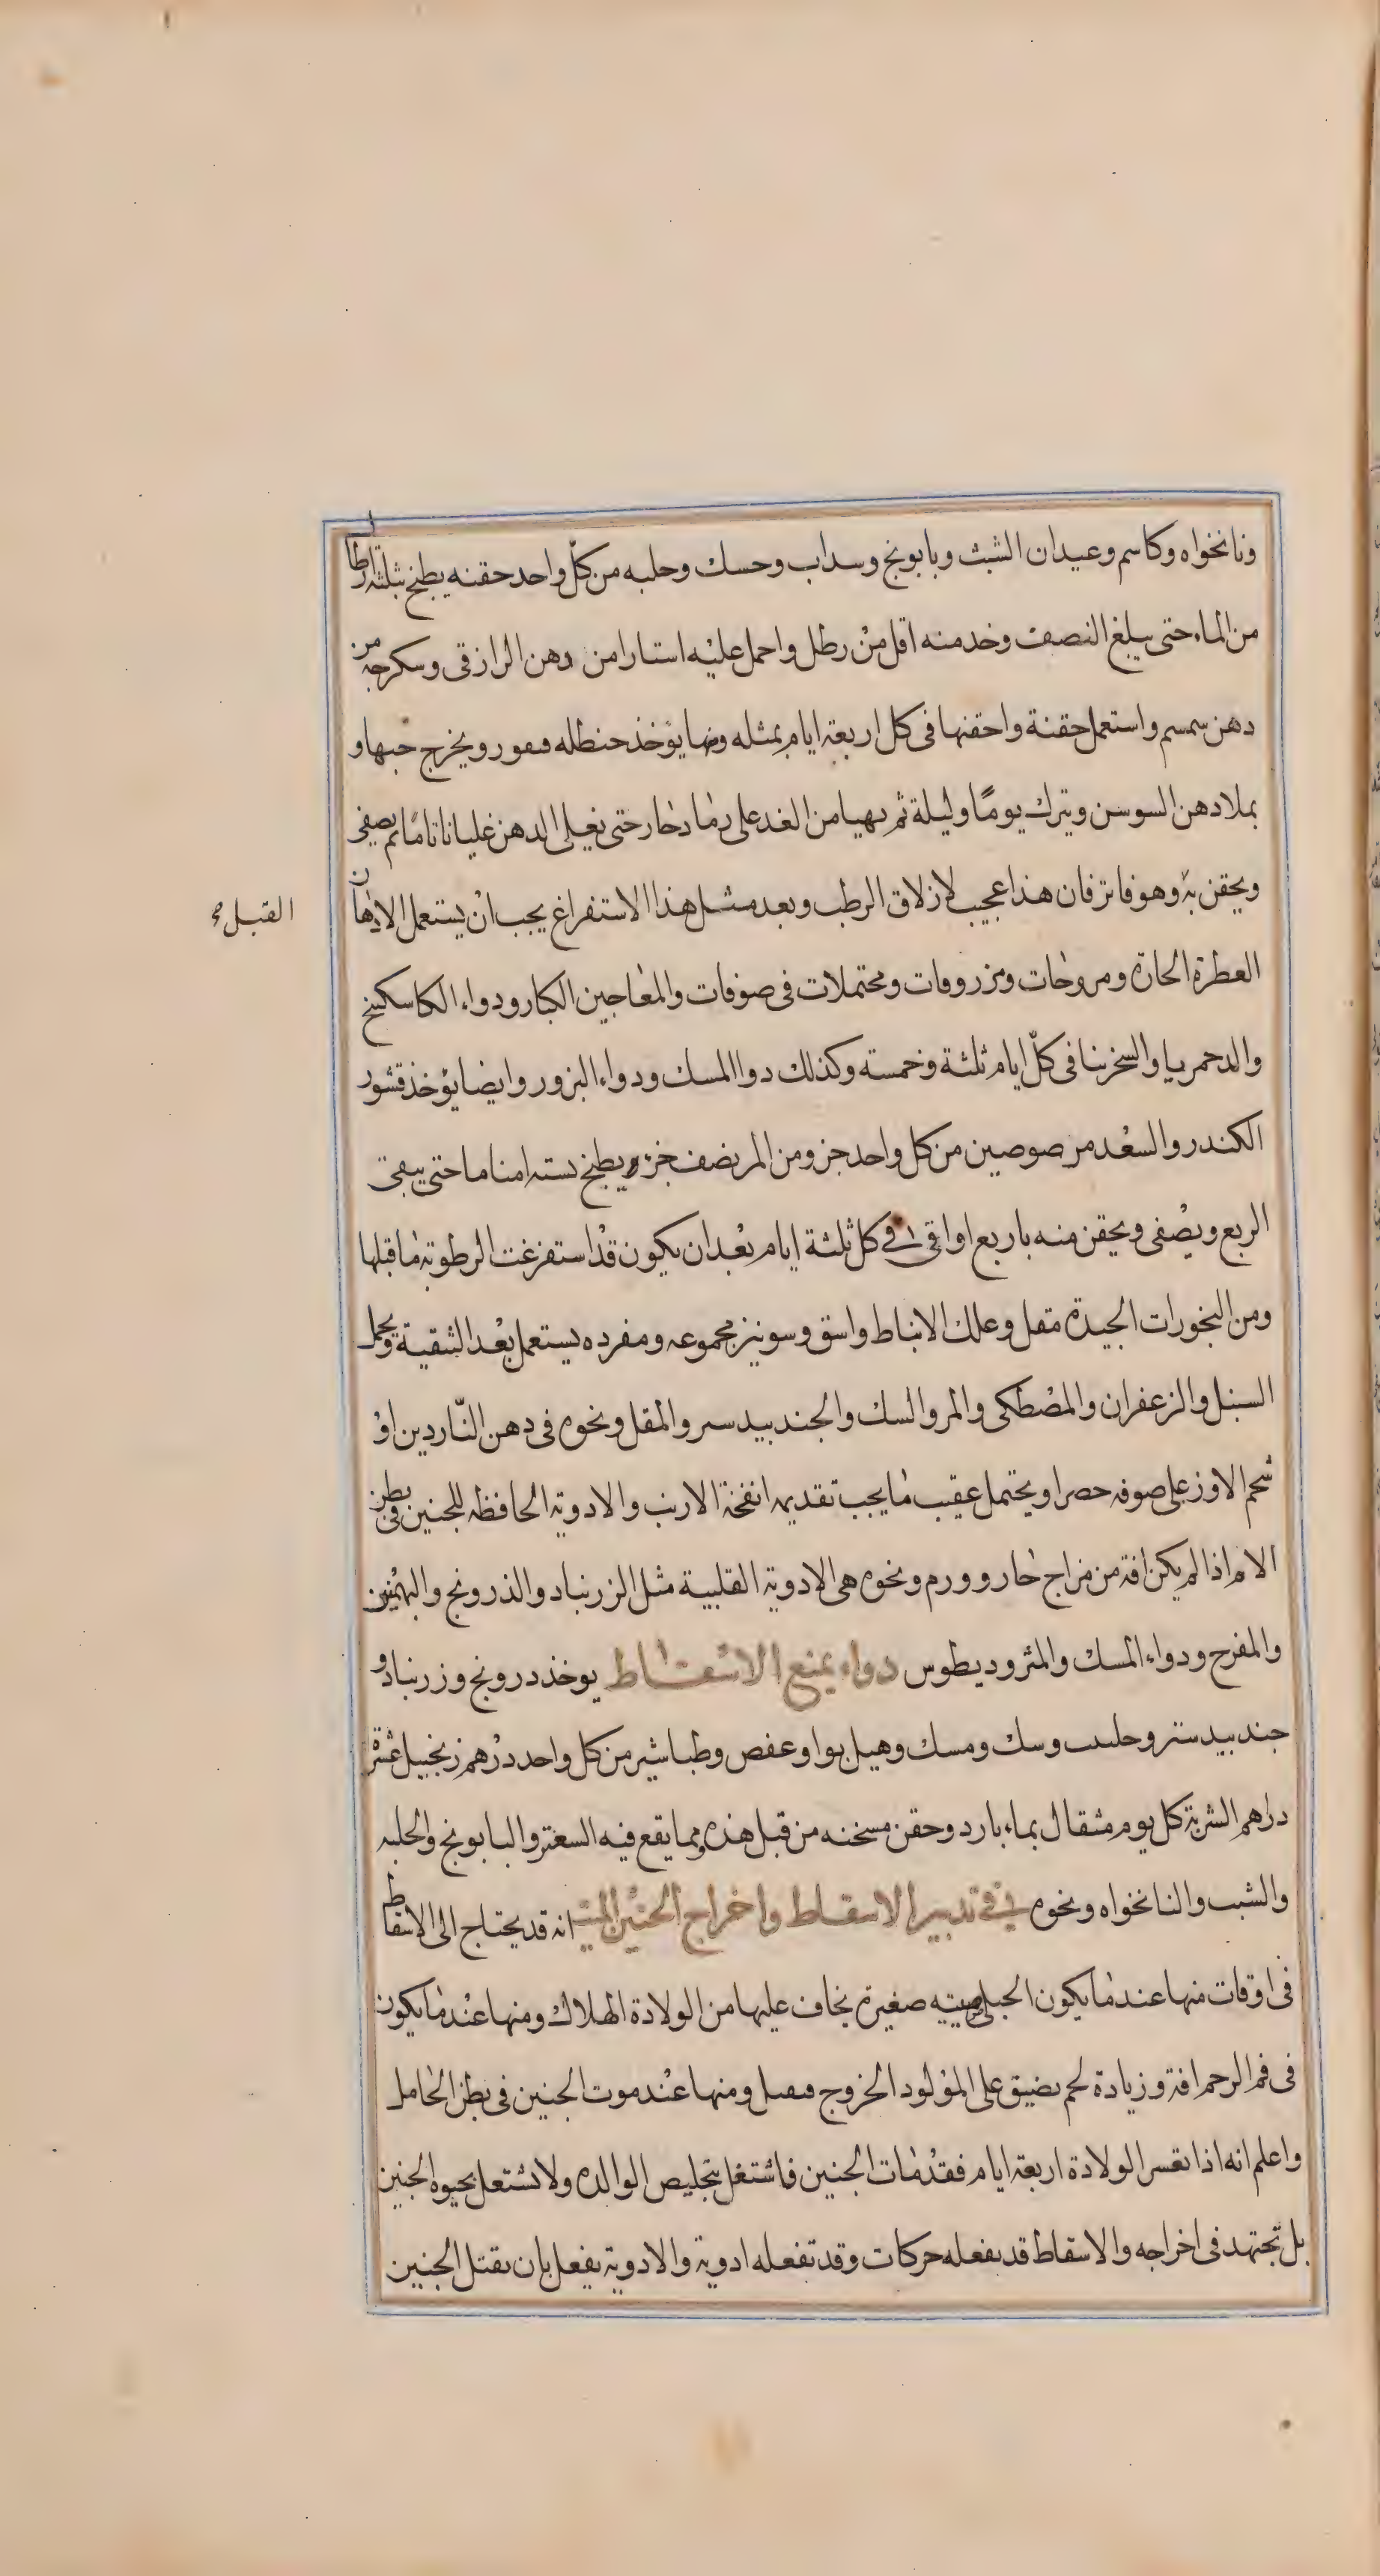 ونانخواه وكاسم وعيدان الشبث وبابونج وسداب وحسك وحلبه من كلّ واحد حقنه يطبخ بثلثة ارطا
من الماء حتى يبلغ النصف وخد منه اقل من رطل واحمل عليه استارا من دهن الرازقى وسكرجه من
دهن سمسم واستعمل حقنة واحقنها فى كل اربعة ايام بمثله ومنها يؤخذ حنظله فيقور ويخرج حبها و
يملا دهن السوسن ويترك يومًا وليلة ثم يهيا من الغد على رماد حار حتى يغلى الدهن غليانا تامًا ثم يصفى
ويحقن به وهو فاتر فان هذا عجيب لازلاق الرطب وبعد مثل هذا الاستفراغ يجب ان يستعمل الادهان
القبل صح
العطرة الحارة ومروخات ومزروقات ومحتملات فى صوفات والمعاجين الكبار ودواء الكاسكبنج
والدحمرىا والسخرنىا فى كلّ ايام ثلثة وخمسته وكذلك دوا المسك ودواء البزور وايضا يؤخذ قشور
الكندر والسعد مرصوصين من كل واحد جز ومن المر نصف جزء ويطبخ بسته امنا ما حتى يبقى
الربع ويصفى ويحقن منه باربع اواقى فى كل ثلثة ايام بعد ان يكون قد استفرغت الرطوبة ما قبلها
ومن البخورات الجيدة مقل وعلك الانباط واسق وسونيز مجموعه ومفرده يستعمل بعد التنقية ويحمل
السنبل والزعفران والمصطكى والمر والسك والجندبيدستر والمقل ونحوه فى دهن الناردين او
شحم الاوز على صوفه خضرا ويحتمل عقيب ما يجب تقديمه انفخة الارنب والادوية الحافظه للجنين فى بطن
الام اذا لم يكن افة من مزاج حار وورم ونحوه هى الادوية القلبية مثل الزرنباد والذرونج والبهمنين
والمفرح ودواء المسك والمثروديطوس دواء يمنع الاسقاط يوخذ درونج وزرنباد و
جندبيدستر وحلىت وسك ومسك وهيل بوا وعفص وطباشير من كل واحد درهم زنجبيل عشرة
دراهم الشربة كل يوم مثقال بماء بارد وحقن مسخنه من قبل هذه ومما يقع فيه السعتر والبابونج والحلبه
والشبث والنانخواه ونحوه فى تدبير الاسقاط واخراج الجنين الميت انه قد يحتاج الى الاسقاط
فى اوقات منها عند ما يكون الحبلى صبيه صغيرة يخاف عليها من الولادة الهلاك ومنها عند ما يكون
فى فم الرحم افة وزيادة لحم يضيق على المولود الخروج فىقىل ومنها عند موت الجنين فى بطن الحامل
واعلم انه اذا تعسر الولادة اربعة ايام فقد مات الجنين فاشتغل بتخليص الوالده ولا تشتغل بحيوة الجنين
بل تجتهد فى اخراجه والاسقاط قد يفعله حركات وقد تفعله ادوية والادوية يفعل بان يقتل الجنين